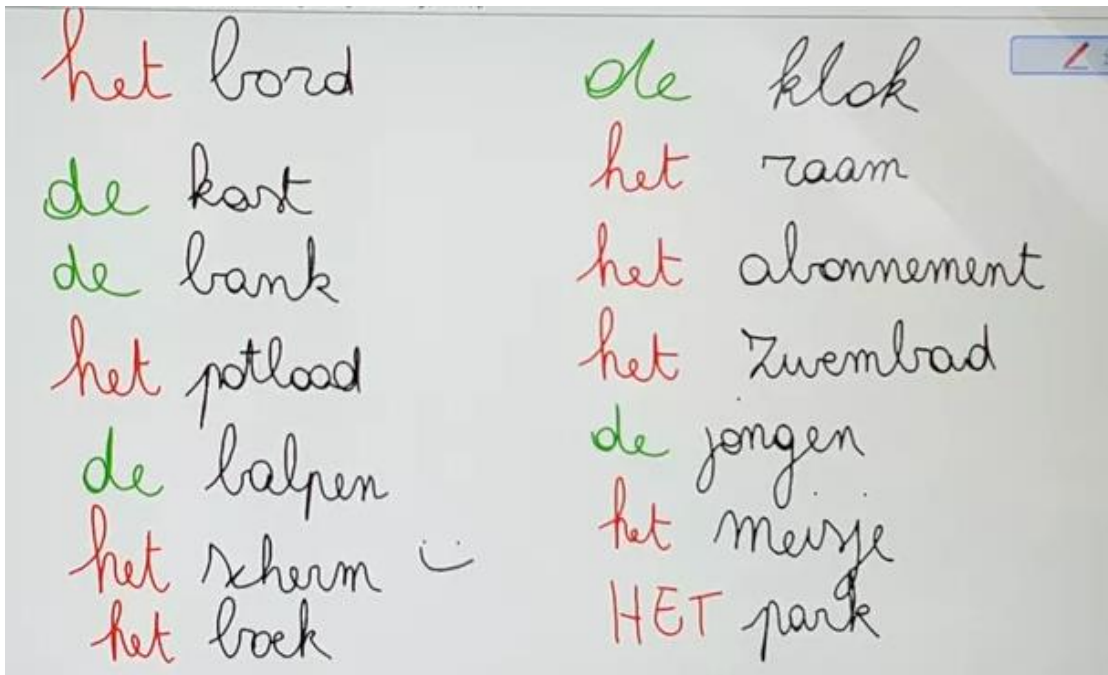 het bord
de kast
de bank
het potlood
de balpen
het scherm
het boek
de klok
het raam
het abonnement
het zwembad
de jongen
het meisje
HET park